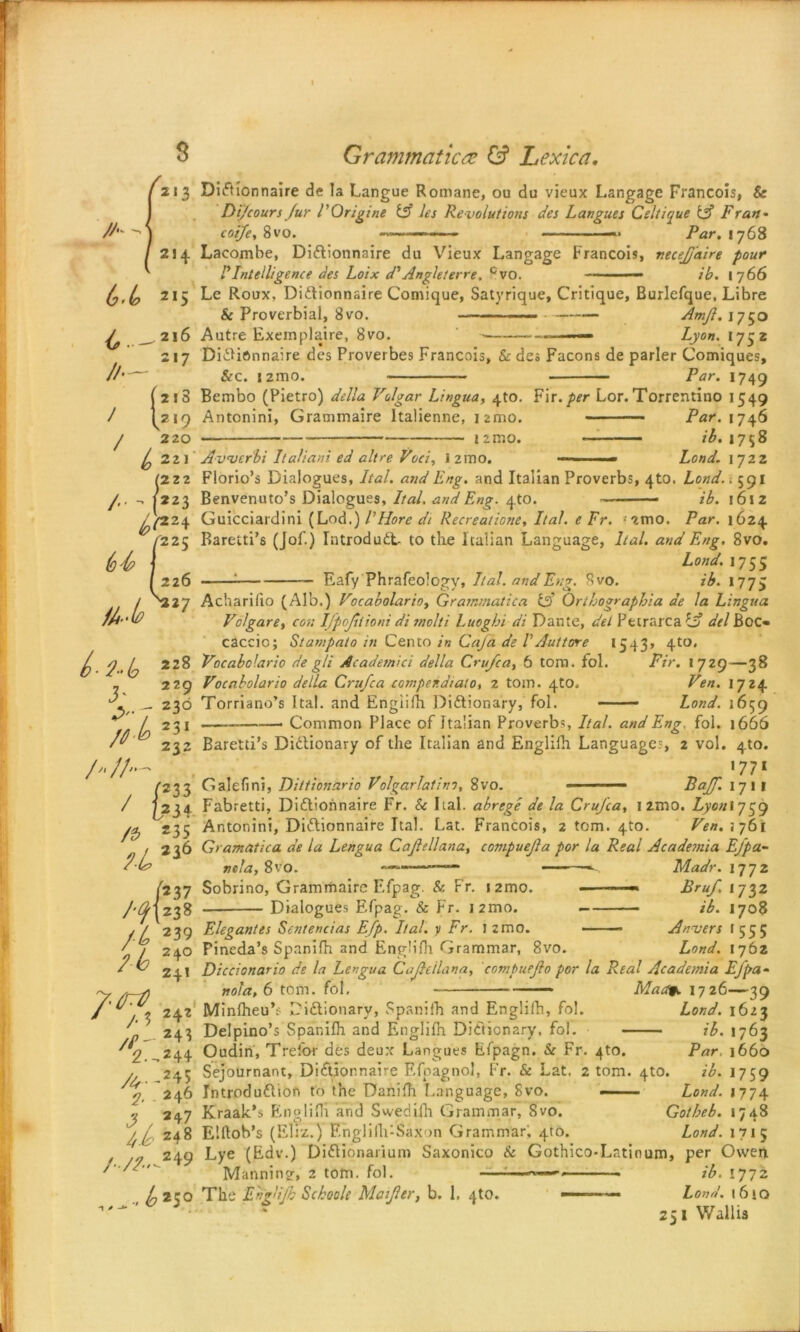 8 Grammaticæ & Lexica.
213 Dictionnaire de la Langue Romane, ou du vieux Langage Francois, &
Discours sur l'Origine & les Revolutions des Langues Celtique & Fran-
coise, 8vo. Par. 1768
214 Lacombe, Dictionnaire du Vieux Langage Francois, necessaire pour
l'Intelligence des Loix d'Angleterre, 8vo. ib. 1766
6.6 215 Le Roux, Dictionnaire Comique, Satyrique, Critique, Burlesque, Libre
& Proverbial, 8vo. Amst. 1750
216 Autre Exemplaire, 8vo. Lyon. 1752
217 Dictionnaire des Proverbes Francois, & des Facons de parler Comiques,
&c. 12mo. Par. 1749
218 Bembo (Pietro) della Volgar Lingua, 4to. Fir. per Lor. Torrentino 1549
219 Antonini, Grammaire Italienne, 12mo. Par. 1746
220 ——— 12mo. ib. 1758
6 221 Avverbi Italiani ed altre Voci, 12mo. Lond. 1722
222 Florio's Dialogues, Ital. and Eng. and Italian Proverbs, 4to. Lond. 1591
223 Benvenuto's Dialogues, Ital. and Eng. 4to. ib. 1612
6 224 Guicciardini (Lod.) l'Hore di Recreatione, Ital. e Fr. 12mo. Par. 1624
225 Baretti's (Jos.) Introduct. to the Italian Language, Ital. and Eng. 8vo.
Lond. 1755
226 ——— Easy Phraseology, Ital. and Eng. 8vo. ib. 1775
227 Acharisio (Alb.) Vocabolario, Grammatica & Orthographia de la Lingua
Volgare, con Ispositioni di molti Luoghi di Dante, del Petrarca & del Boc-
caccio; Stampato in Cento in Casa de l'Auttore 1543, 4to.
228 Vocabolario de gli Academici della Crusca, 6 tom. fol. Fir. 1729—38
229 Vocabolario della Crusca compendiato, 2 tom. 4to. Ven. 1724
230 Torriano's Ital. and English Dictionary, fol. Lond. 1659
231 ——— Common Place of Italian Proverbs, Ital. and Eng. fol. 1666
232 Baretti's Dictionary of the Italian and English Languages, 2 vol. 4to.
1771
233 Galesini, Dittionario Volgarlatino, 8vo. Bass. 1711
234 Fabretti, Dictionnaire Fr. & Ital. abregé de la Crusca, 12mo. Lyon 1759
235 Antonini, Dictionnaire Ital. Lat. Francois, 2 tom. 4to. Ven. 1761
236 Gramatica de la Lengua Castellana, compuesta por la Real Academia Espa-
nola, 8vo. Madr. 1772
237 Sobrino, Grammaire Espag. & Fr. 12mo. Brus. 1732
238 ——— Dialogues Espag. & Fr. 12mo. ib. 1708
239 Elegantes Sentencias Esp. Ital. y Fr. 12mo. Anvers 1555
240 Pineda's Spanish and English Grammar, 8vo. Lond. 1762
241 Diccionario de la Lengua Castellana, compuesto por la Real Academia Espa-
nola, 6 tom. fol. Madr. 1726—39
242 Minsheu's Dictionary, Spanish and English, fol. Lond. 1623
243 Delpino's Spanish and English Dictionary, fol. ib. 1763
244 Oudin, Tresor des deux Langues Espagn. & Fr. 4to. Par. 1660
245 Sejournant, Dictionnaire Espagnol, Fr. & Lat. 2 tom. 4to. ib. 1759
246 Introduction to the Danish Language, 8vo. Lond. 1774
247 Kraak's English and Swedish Grammar, 8vo. Gotheb. 1748
248 Elstob's (Eliz.) English-Saxon Grammar, 4to. Lond. 1715
249 Lye (Edv.) Dictionarium Saxonico & Gothico-Latinum, per Owen
Manning, 2 tom. fol. ib. 1772
6 250 The English Schoole Maister, b. l. 4to. Lond. 1610
251 Wallis